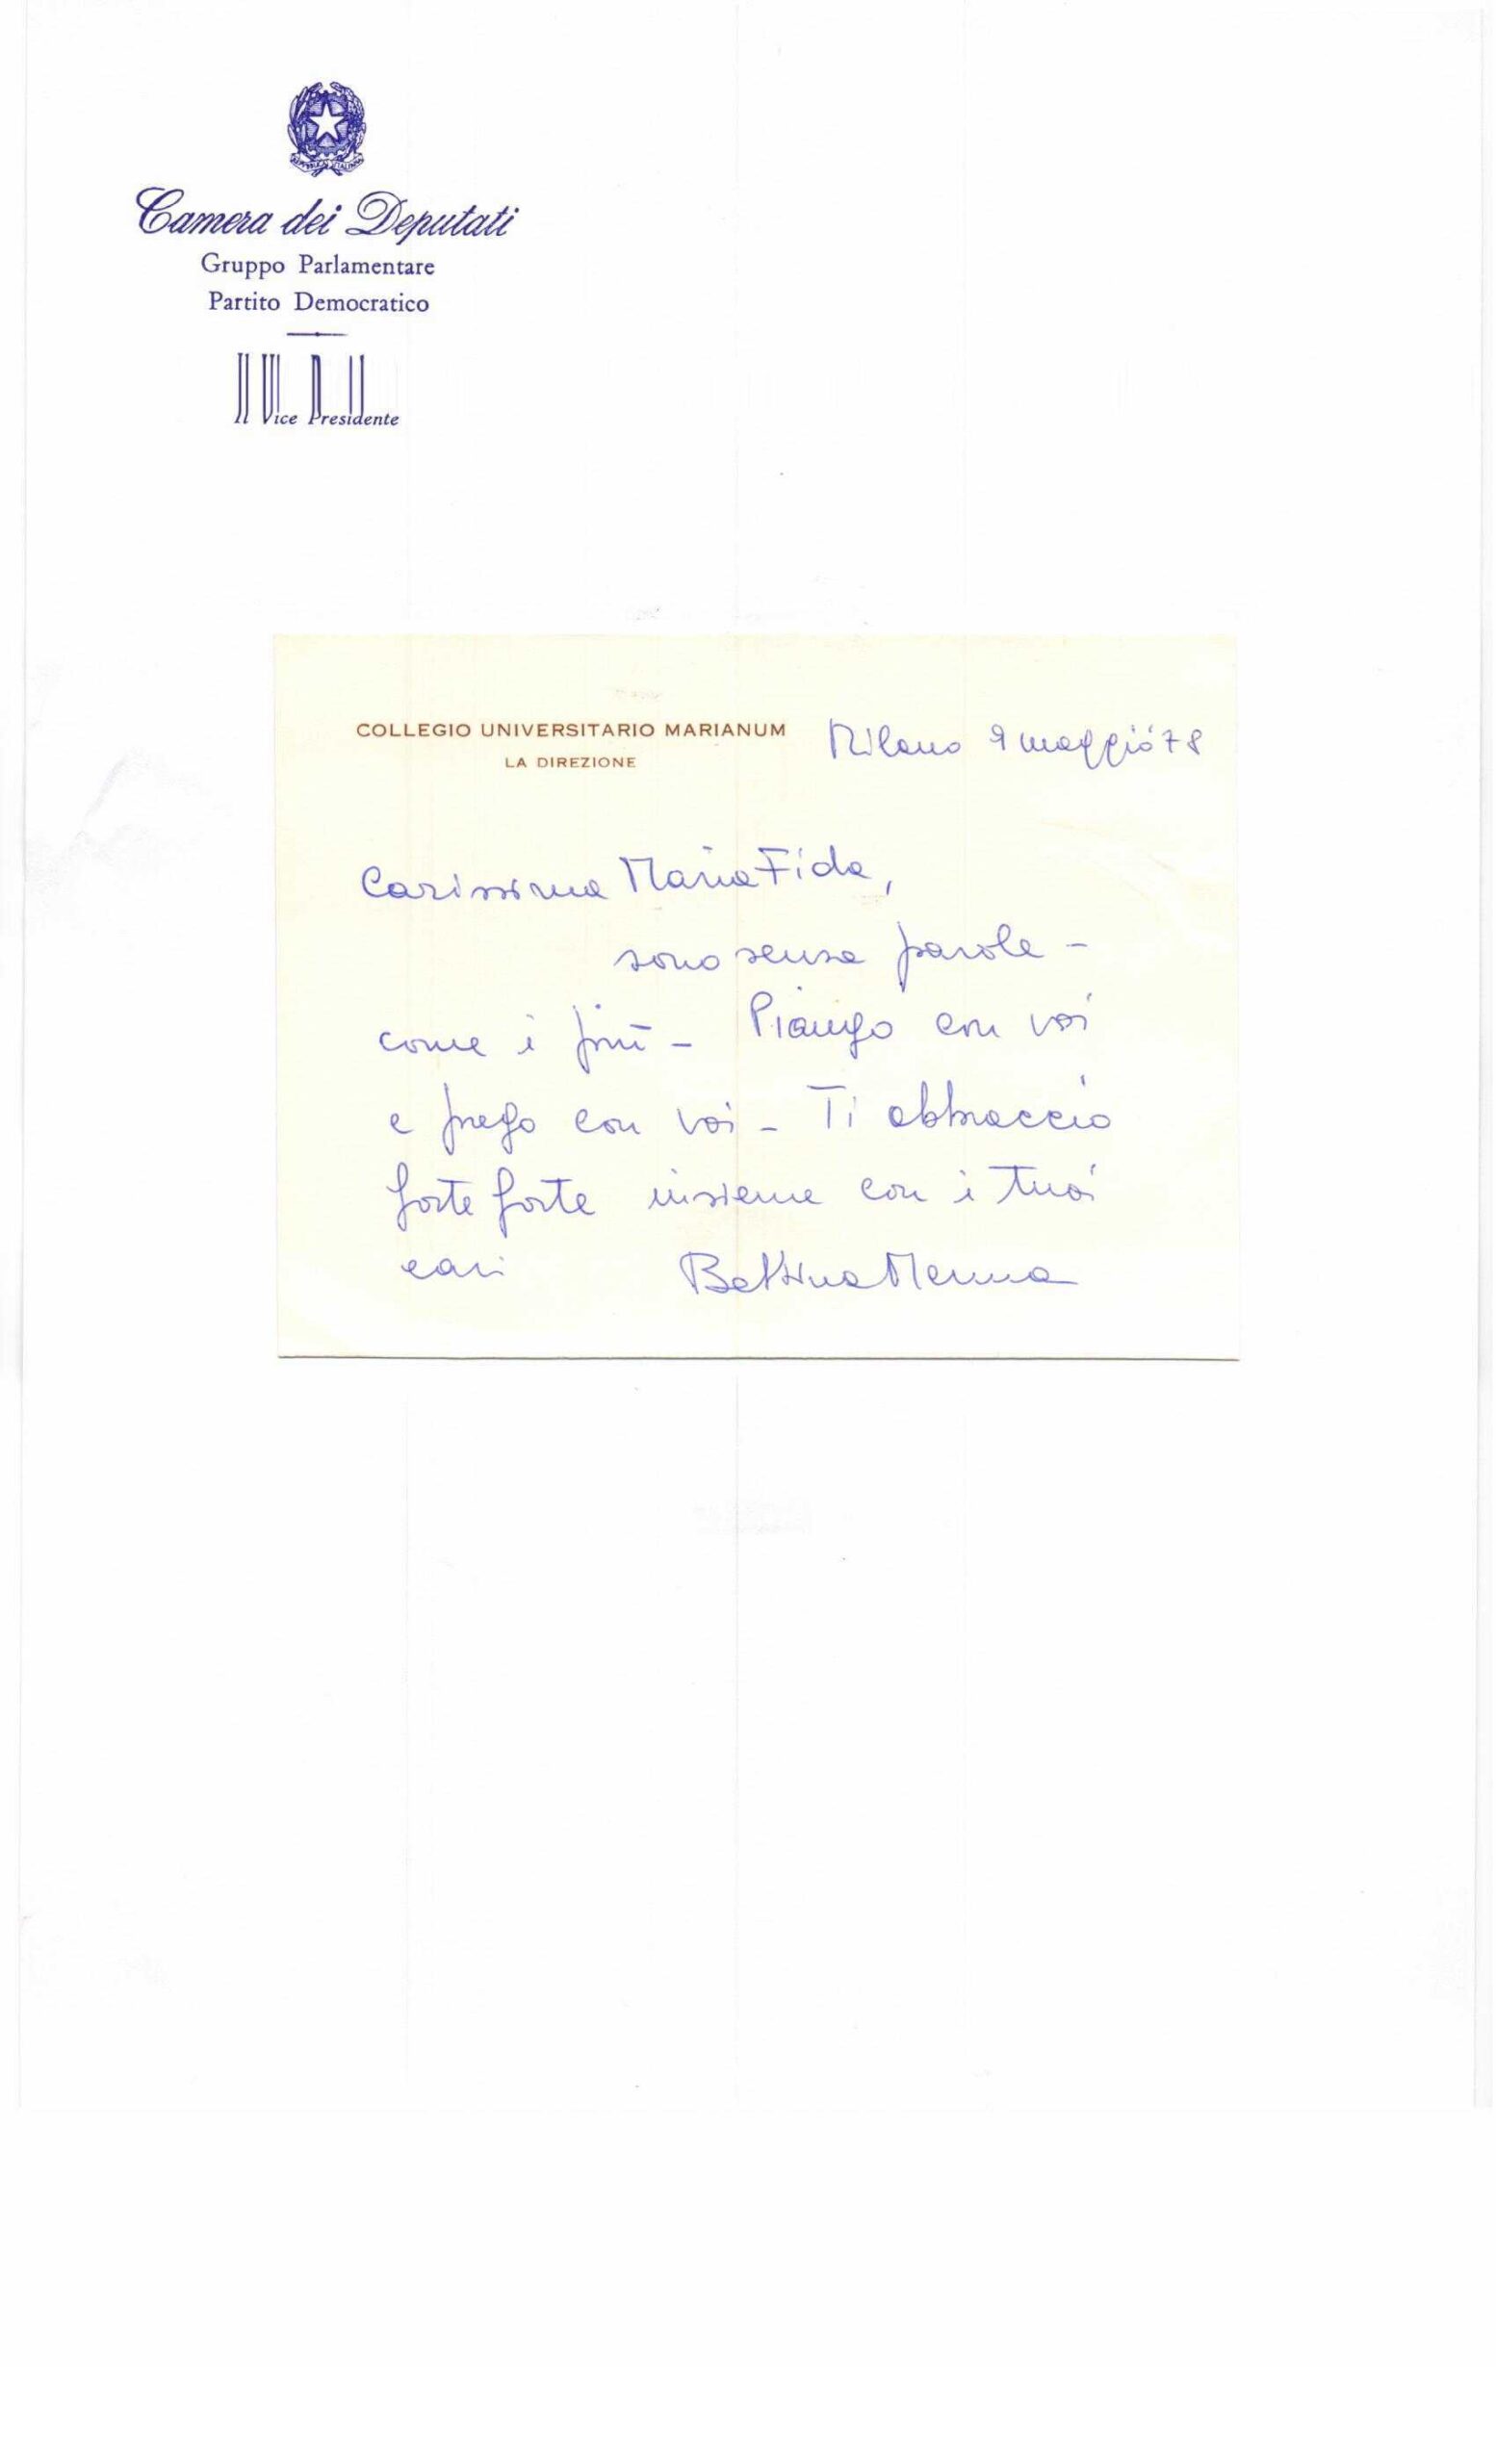 Camera dei Deputati
Gruppo Parlamentare
Partito Democratico
Il Vice Presidente
COLLEGIO UNIVERSITARIO MARIANUM
LA DIREZIONE
Milano 9 maggio '78
Carissima Maria Fida,
sono senza parole -
come i più - Piango con voi
e prego con voi - Ti abbraccio
forte forte insieme con i tuoi
cari Bettina Menna